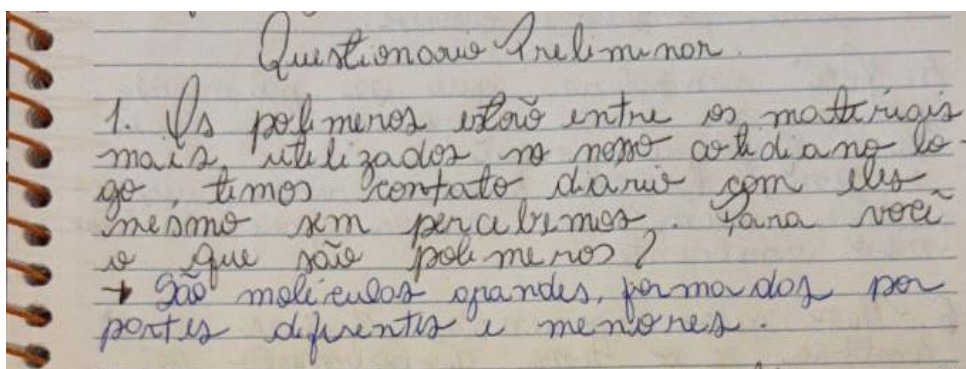 Questionario Preliminar.
1. Os polimeros estão entre os materiais
mais utilizados no nosso cotidiano lo-
go, temos contato diario com eles
mesmo sem percebermos. Para você
o que são polimeros?
→ São moléculas grandes, formadas por
partes diferentes e menores.